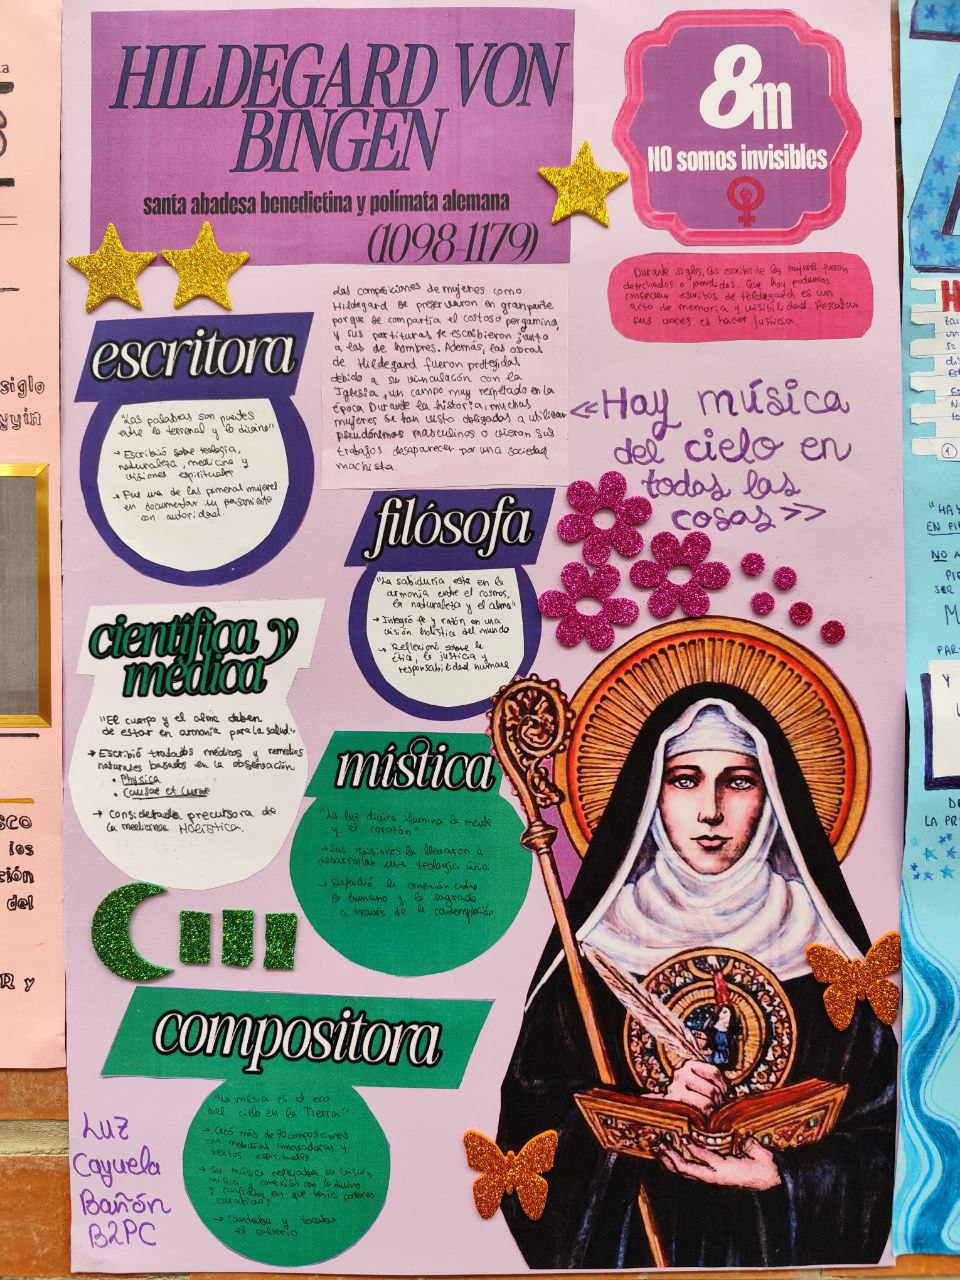 HILDEGARD VON
BINGEN
santa abadesa benedictina y polímata alemana
(1098-1179)
8m
NO somos invisibles
Durante siglos, los escritos de las mujeres fueron
desechados o perdidos. Que hoy podamos
conservar escritos de Hildegard es un
acto de memoria y visibilidad. Rescatar
sus voces es hacer justicia
Las composiciones de mujeres como
Hildegard se preservaron en gran parte
porque se compartía el costoso pergamino
y sus partituras se escribieron junto
a las de hombres. Además, las obras
de Hildegard fueron protegidas
debido a su vinculación con la
Iglesia, un campo muy respetado en la
época. Durante la historia, muchas
mujeres se han visto obligadas a utilizar
pseudónimos masculinos o vieran sus
trabajos desaparecer por una sociedad
machista.
escritora
"Las palabras son puentes
entre lo terrenal y lo divino"
→ Escribió sobre teología,
naturaleza, medicina y
visiones espirituales
→ Fue una de las primeras mujeres
en documentar su pensamiento
con autoridad.
<<Hay música
del cielo en
todas las
cosas>>
filósofa
"La sabiduría está en la
armonía entre el cosmos,
la naturaleza y el alma"
→ Integró fe y razón en una
visión holística del mundo
→ Reflexionó sobre la
ética, la justicia y
responsabilidad humana
científica y
médica
"El cuerpo y el alma deben
de estar en armonía para la salud"
→ Escribió tratados médicos y remedios
naturales basados en la observación
• Physica
• Causae et Curae
→ Considerada precursora de
la medicina Holística.
mística
"La luz divina ilumina la mente
y el corazón"
→ Sus visiones la llevaron a
desarrollar una teología única
→ Defendió la conexión entre
lo humano y lo sagrado
a través de la contemplación
compositora
"La música es el eco
del cielo en la Tierra"
→ Creó más de 70 composiciones
con melodías innovadoras y
textos espirituales
→ Su música reflejaba su visión
mística y conexión con lo divino
y en que tenía poderes
curativos
→ Cantaba y tocaba
el salterio
Luz
Cayuela
Bañón
B2PC
siglo
SCO
los
ción
del
R y
"HAY
EN PI
NO A
PIE
SER
M
PAR
Y
DE
LA PR